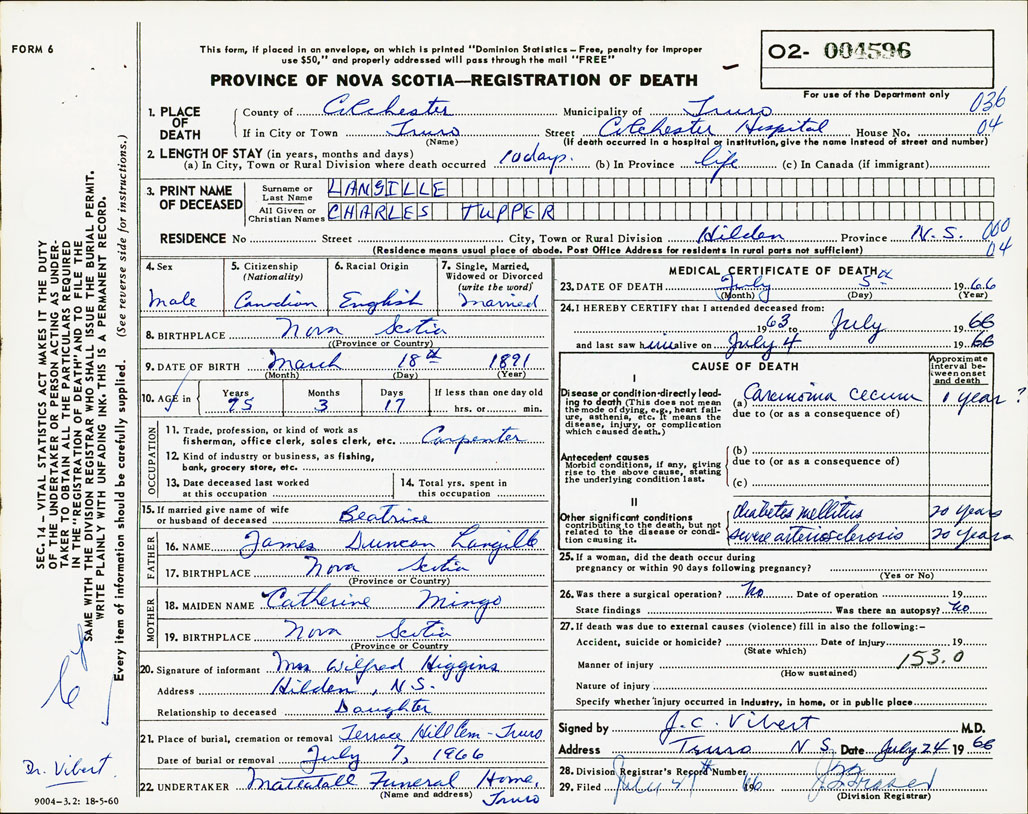 FORM 6
This form, if placed in an envelope, on which is printed "Dominion Statistics – Free, penalty for improper
use $50," and properly addressed will pass through the mail "FREE"
PROVINCE OF NOVA SCOTIA—REGISTRATION OF DEATH
O2- 004596
For use of the Department only
036
04
1. PLACE OF DEATH County of Colchester Municipality of Truro
If in City or Town Truro Street Colchester Hospital House No.
(Name) (If death occurred in a hospital or institution, give the name instead of street and number)
2. LENGTH OF STAY (in years, months and days)
(a) In City, Town or Rural Division where death occurred 10 days. (b) In Province life (c) In Canada (if immigrant)
3. PRINT NAME OF DECEASED
Surname or Last Name LANGILLE
All Given or Christian Names CHARLES TUPPER
RESIDENCE No Street City, Town or Rural Division Hilden Province N.S.
000
04
(Residence means usual place of abode. Post Office Address for residents in rural parts not sufficient)
4. Sex Male
5. Citizenship (Nationality) Canadian
6. Racial Origin English
7. Single, Married, Widowed or Divorced (write the word) Married
8. BIRTHPLACE Nova Scotia
(Province or Country)
9. DATE OF BIRTH March 18th 1891
(Month) (Day) (Year)
10. AGE in Years 75 Months 3 Days 17 If less than one day old
hrs. or min.
OCCUPATION
11. Trade, profession, or kind of work as
fisherman, office clerk, sales clerk, etc. Carpenter
12. Kind of industry or business, as fishing,
bank, grocery store, etc.
13. Date deceased last worked
at this occupation
14. Total yrs. spent in
this occupation
15. If married give name of wife
or husband of deceased Beatrice
FATHER
16. NAME James Duncan Langille
17. BIRTHPLACE Nova Scotia
(Province or Country)
MOTHER
18. MAIDEN NAME Catherine Mingo
19. BIRTHPLACE Nova Scotia
(Province or Country)
20. Signature of informant Mrs Wilfred Higgins
Address Hilden, N.S.
Relationship to deceased Daughter
21. Place of burial, cremation or removal Terrace Hill Cem - Truro
Date of burial or removal July 7, 1966
22. UNDERTAKER Mattatall Funeral Home,
(Name and address) Truro
MEDICAL CERTIFICATE OF DEATH
23. DATE OF DEATH July 5th 1966
(Month) (Day) (Year)
24. I HEREBY CERTIFY that I attended deceased from:
1963 to July 1966
and last saw him alive on July 4 1966
CAUSE OF DEATH
Approximate interval between onset and death
I
Disease or condition directly leading to death (This does not mean the mode of dying, e.g., heart failure, asthenia, etc. It means the disease, injury, or complication which caused death.)
(a) Carcinoma cecum 1 year ?
due to (or as a consequence of)
Antecedent causes
Morbid conditions, if any, giving rise to the above cause, stating the underlying condition last.
(b)
due to (or as a consequence of)
(c)
II
Other significant conditions contributing to the death, but not related to the disease or condition causing it
diabetes mellitus 20 years
severe arteriosclerosis 20 years
25. If a woman, did the death occur during
pregnancy or within 90 days following pregnancy?
(Yes or No)
26. Was there a surgical operation? No Date of operation 19
State findings Was there an autopsy? No
27. If death was due to external causes (violence) fill in also the following:-
Accident, suicide or homicide? Date of injury 19
(State which)
153.0
Manner of injury
(How sustained)
Nature of injury
Specify whether injury occurred in industry, in home, or in public place
Signed by J.C. Vibert M.D.
Address Truro N S Date July 24 1966
28. Division Registrar's Record Number
29. Filed July 66
(Division Registrar)
SEC. 14 – VITAL STATISTICS ACT MAKES IT THE DUTY
OF THE UNDERTAKER OR PERSON ACTING AS UNDER-
TAKER TO OBTAIN ALL THE PARTICULARS REQUIRED
IN THE "REGISTRATION OF DEATH" AND TO FILE THE
SAME WITH THE DIVISION REGISTRAR WHO SHALL ISSUE THE BURIAL PERMIT.
WRITE PLAINLY WITH UNFADING INK. THIS IS A PERMANENT RECORD.
Every item of information should be carefully supplied. (See reverse side for instructions.)
Dr. Vibert.
9004-3.2: 18-5-60